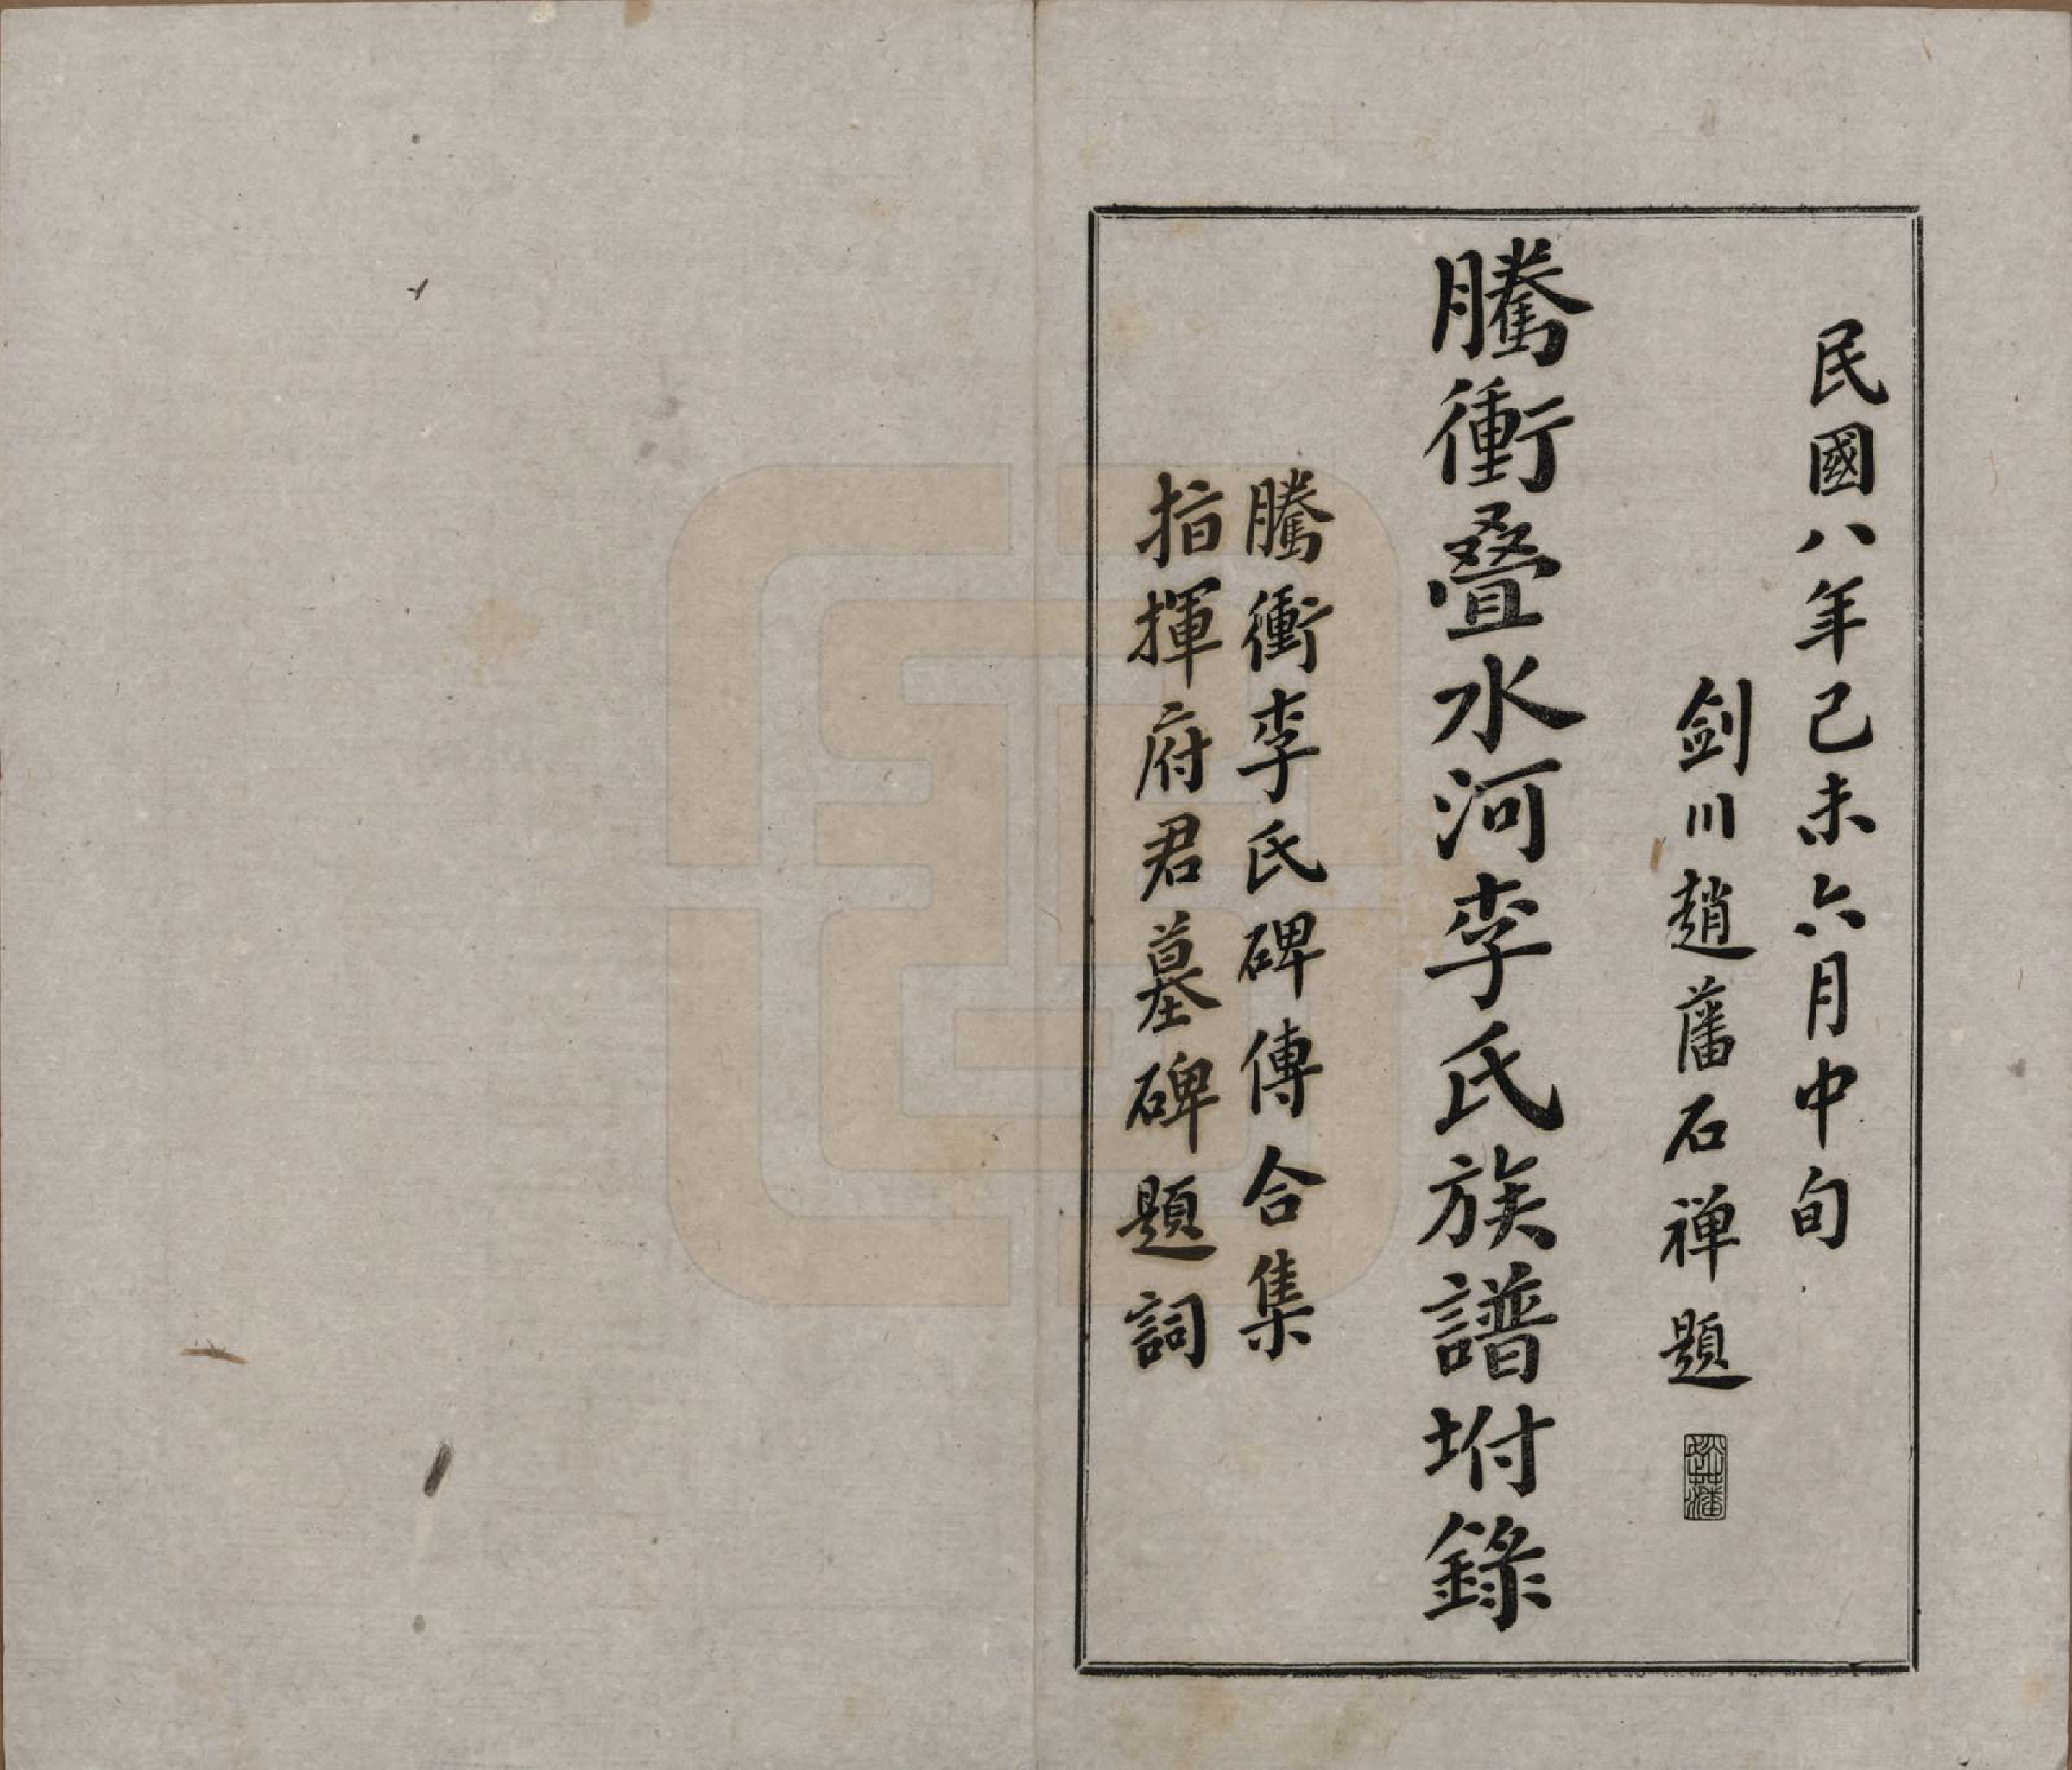 民國八年己未六月中旬
劍川趙藩石禪題
趙藩
騰衝疊水河李氏族譜坿錄
騰衝李氏碑傳合集
指揮府君墓碑題詞